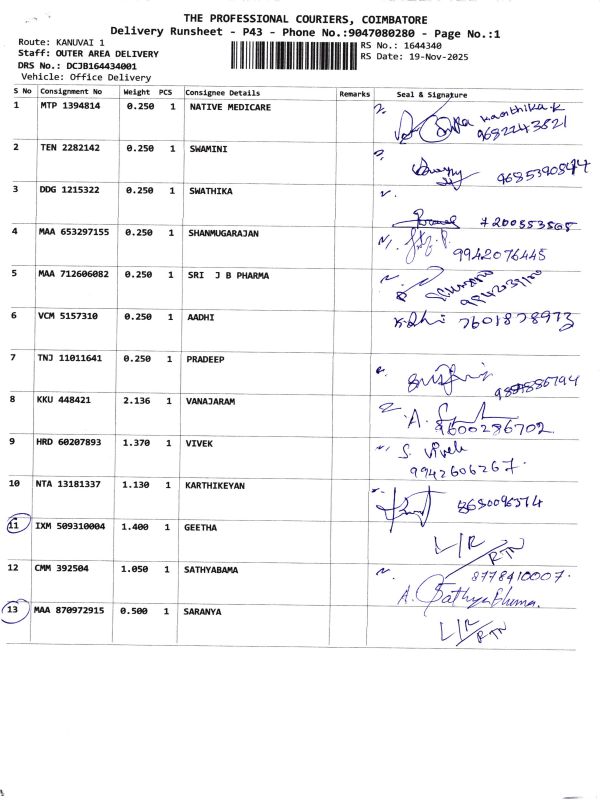 THE PROFESSIONAL COURIERS, COIMBATORE
Delivery Runsheet - P43 - Phone No.:9047080280 - Page No.:1
Route: KANUVAI 1 RS No.: 1644340
Staff: OUTER AREA DELIVERY RS Date: 19-Nov-2025
DRS No.: DCJB164434001
Vehicle: Office Delivery
S No Consignment No Weight PCS Consignee Details Remarks Seal & Signature
1 MTP 1394814 0.250 1 NATIVE MEDICARE Kaarthika.K
9682243821
2 TEN 2282142 0.250 1 SWAMINI
3 DDG 1215322 0.250 1 SWATHIKA
7200353565
4 MAA 653297155 0.250 1 SHANMUGARAJAN
9942076445
5 MAA 712606082 0.250 1 SRI J B PHARMA
6 VCM 5157310 0.250 1 AADHI 7601878973
7 TNJ 11011641 0.250 1 PRADEEP
8 KKU 448421 2.136 1 VANAJARAM
9600286702
9 HRD 60207893 1.370 1 VIVEK S. Vivek
9942606267
10 NTA 13181337 1.130 1 KARTHIKEYAN
11 IXM 509310004 1.400 1 GEETHA L/R
RTN
12 CMM 392504 1.050 1 SATHYABAMA 8778410007
A. Sathya Bhama.
13 MAA 870972915 0.500 1 SARANYA L/R
RTN